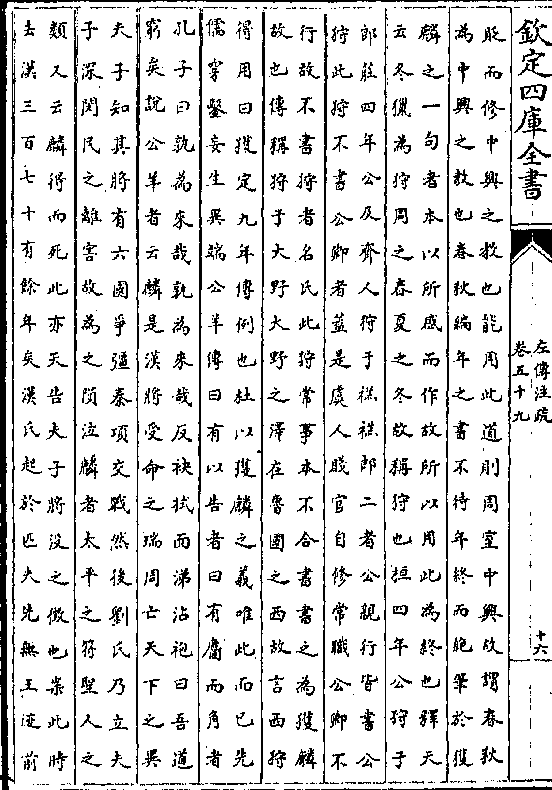 欽定四庫全書
左傳注疏
卷五十九
十六
貶而修中興之教也能用此道則周室中興故謂春秋
為中興之教也春秋編年之書不待年終而絶筆於獲
麟之一句者本以所感而作故所以用此為終也釋天
云冬獵為狩周之春夏之冬故稱狩也桓四年公狩于
郎莊四年公及齊人狩于禚禚郎二者公親行皆書公
狩此狩不書公卿者葢是虞人賤官自修常職公卿不
行故不書狩者名氏此狩常事本不合書書之為獲麟
故也傳稱狩于大野大野之澤在魯國之西故言西狩
得用曰獲定九年傳例也杜以獲麟之義唯此而已先
儒穿鑿妄生異端公羊傳曰有以告者曰有麕而角者
孔子曰孰為來哉孰為來哉反袂拭面涕沾袍曰吾道
窮矣說公羊者云麟是漢將受命之瑞周亡天下之異
夫子知其將有六國爭彊秦項交戰然後劉氏乃立夫
子深閔民之離害故為之隕泣麟者太平之符聖人之
類又云麟得而死此亦天告夫子將沒之徵也案此時
去漢三百七十有餘年矣漢氏起於匹夫先無王迹前